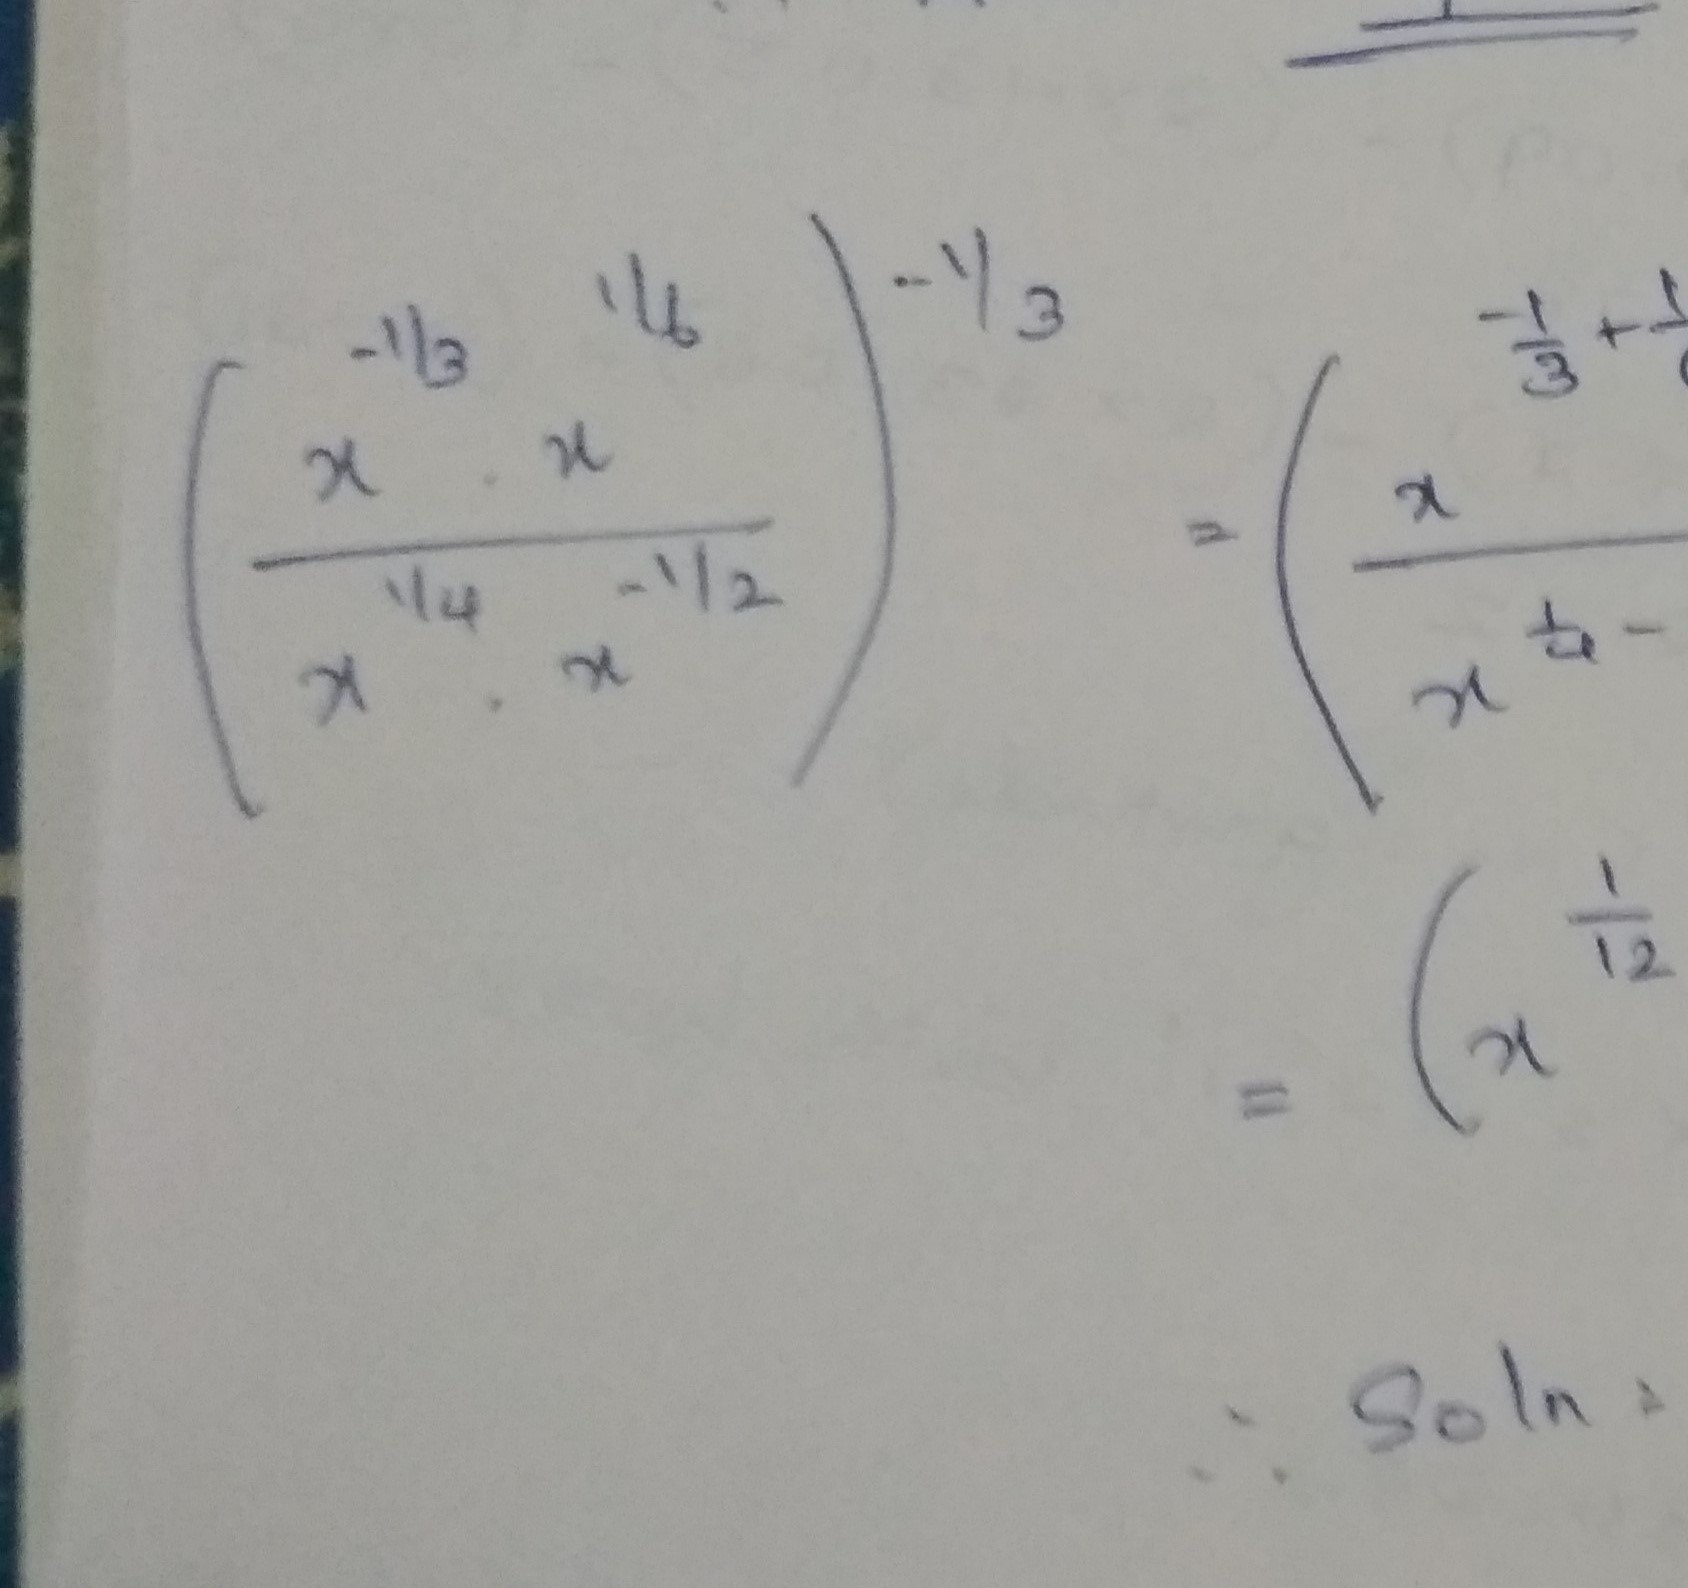 (x^-1/3 . x^1/6 / x^1/4 . x^-1/2)^-1/3 = (x^-1/3 + 1/ / x^1/4 -
= (x^1/12
∴ Soln :